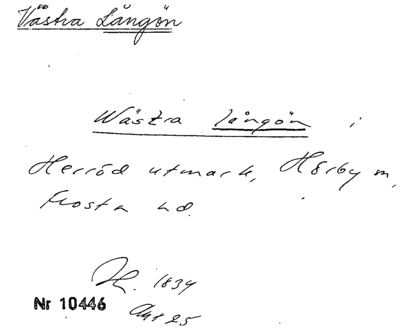 Västra Långön
Wästra långön i
Herröd utmark, Hörby m,
Frosta hd.
H. 1834
Nr 10446
Akt 25